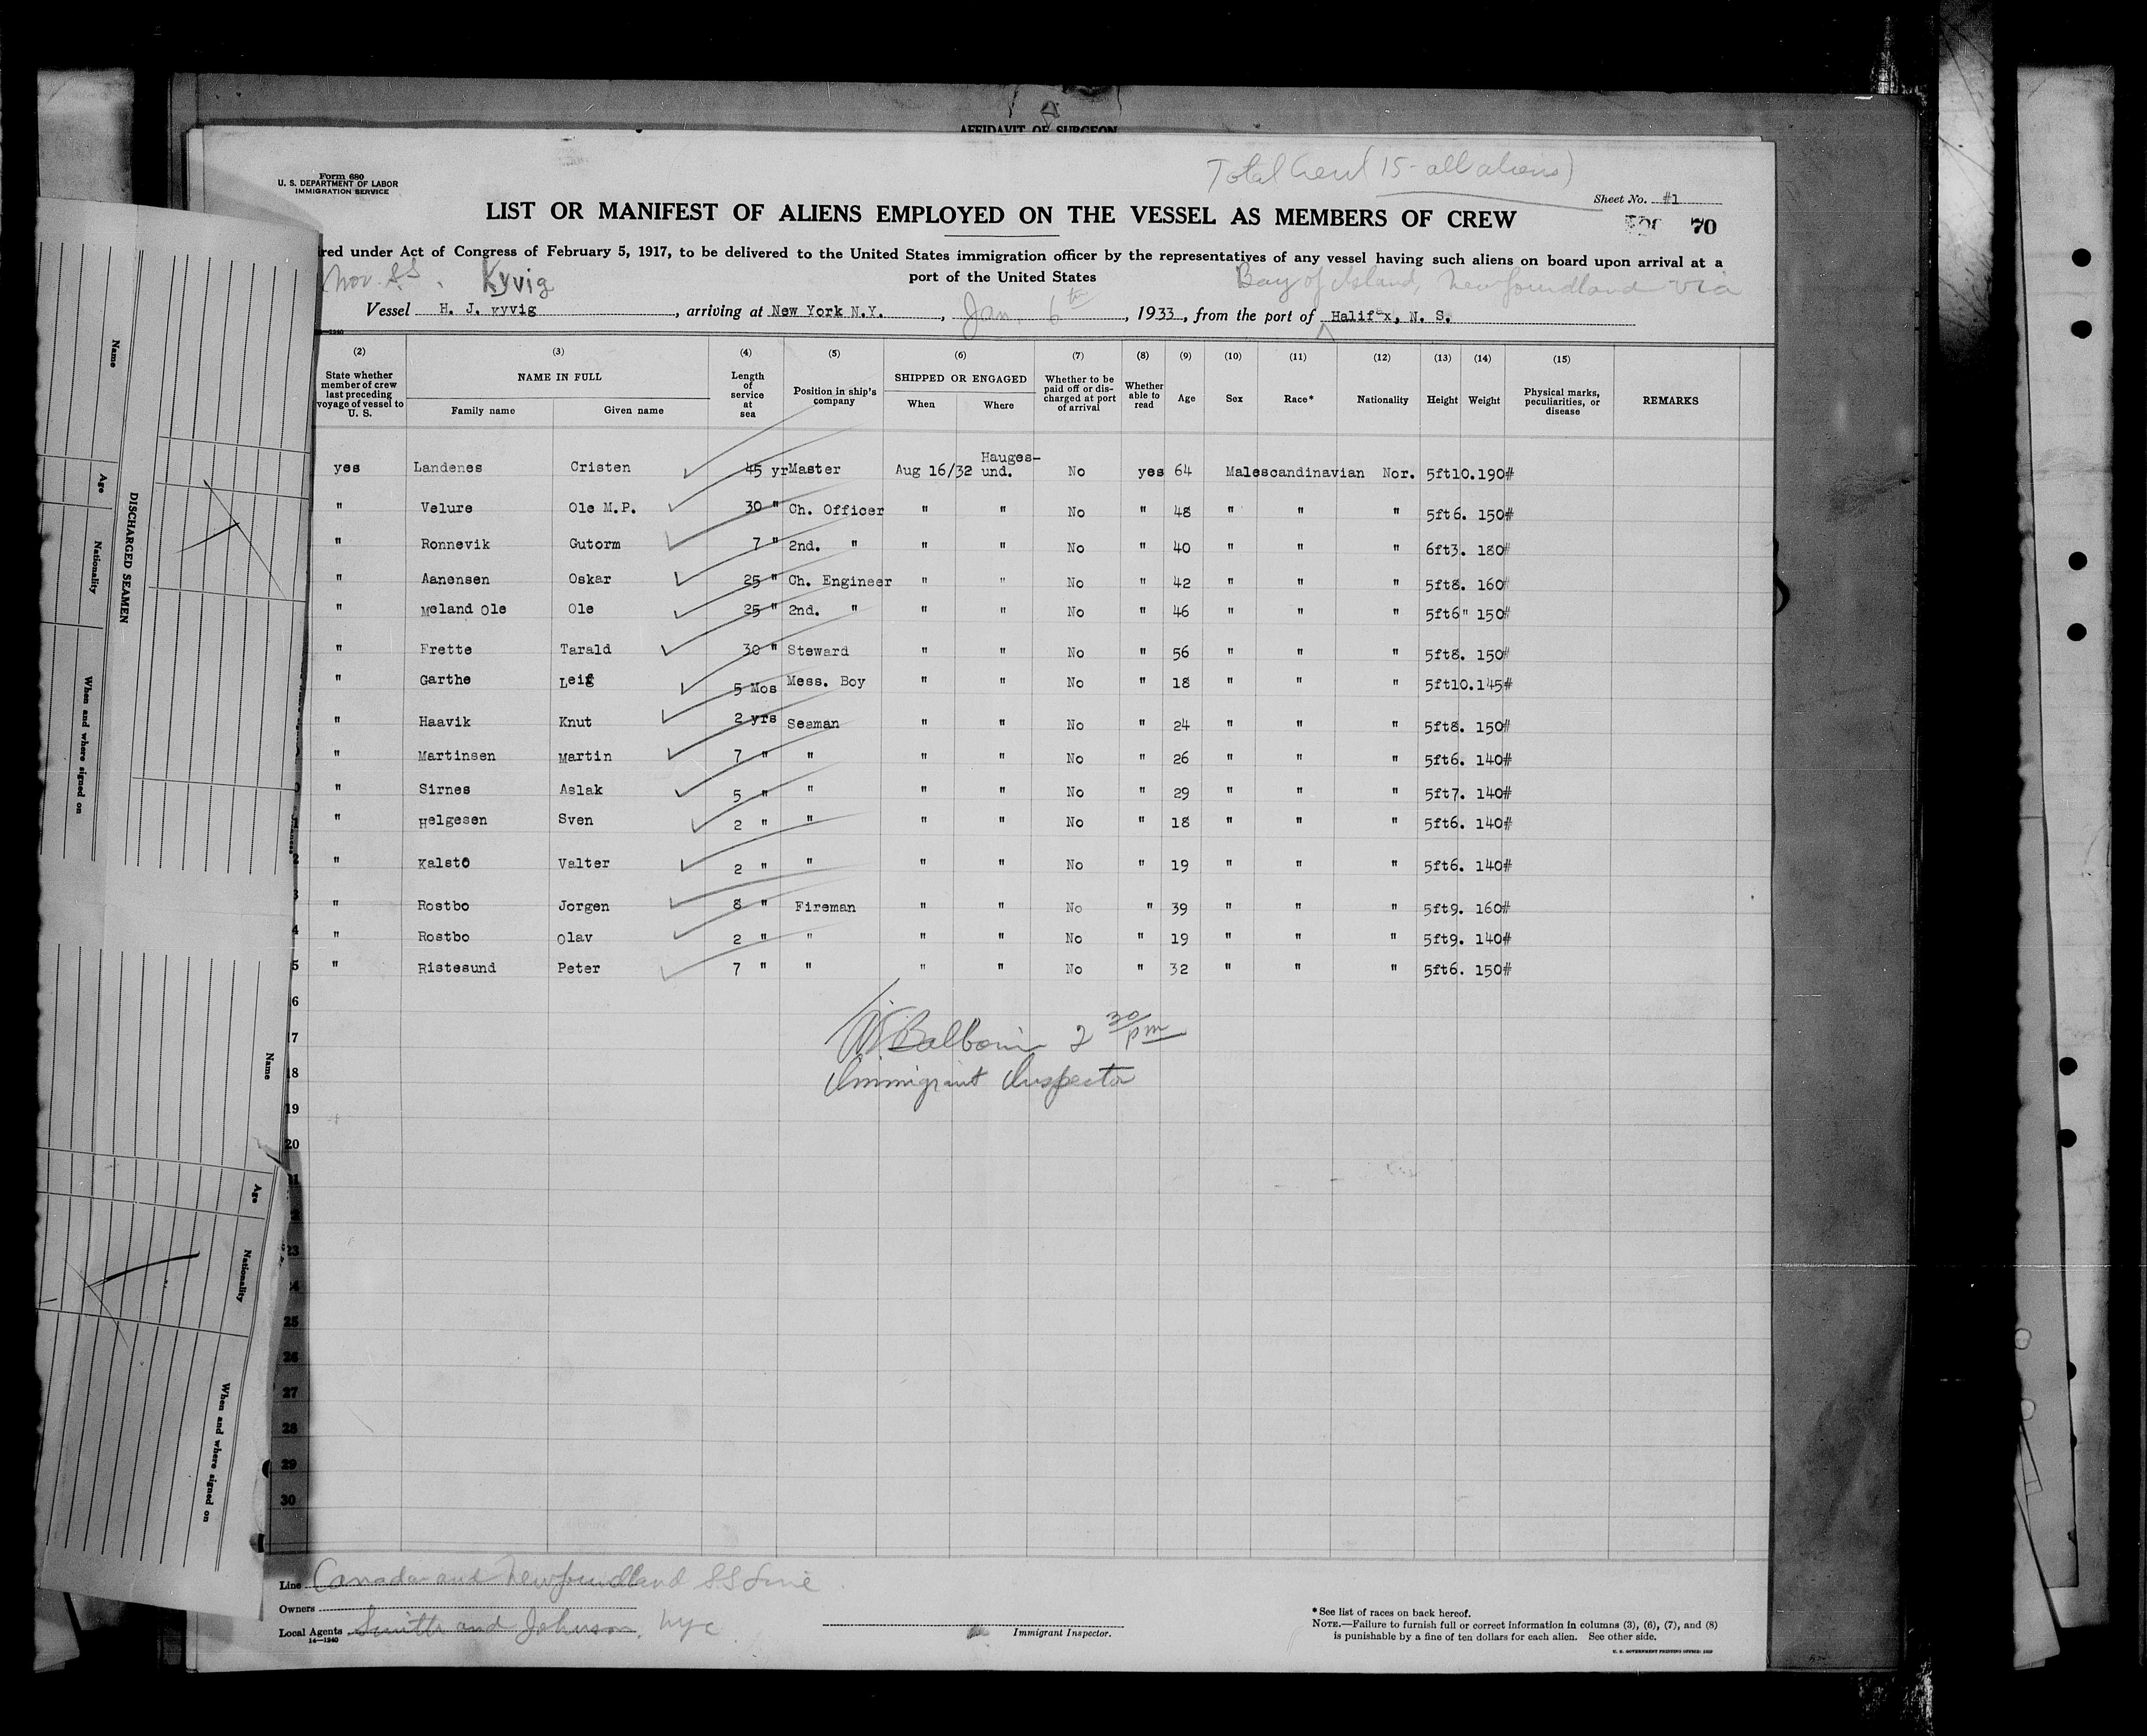 AFFIDAVIT OF SURGEON
Total Crew (15 - all aliens)
Form 680
U. S. DEPARTMENT OF LABOR
IMMIGRATION SERVICE
Sheet No. #1
LIST OR MANIFEST OF ALIENS EMPLOYED ON THE VESSEL AS MEMBERS OF CREW
70
red under Act of Congress of February 5, 1917, to be delivered to the United States immigration officer by the representatives of any vessel having such aliens on board upon arrival at a
port of the United States
Nor. SS. Kyvig
Bay of Island, Newfoundland via
Vessel H. J. Kyvig, arriving at New York N.Y., Jan. 6th, 1933, from the port of Halifax, N. S.
(2) (3) (4) (5) (6) (7) (8) (9) (10) (11) (12) (13) (14) (15)
State whether member of crew last preceding voyage of vessel to U. S. NAME IN FULL Family name Given name Length of service at sea Position in ship's company SHIPPED OR ENGAGED When Where Whether to be paid off or discharged at port of arrival Whether able to read Age Sex Race* Nationality Height Weight Physical marks, peculiarities, or disease REMARKS
yes Landenes Cristen 45 yr Master Aug 16/32 Hauges-und. No yes 64 Male scandinavian Nor. 5ft10. 190#
" Velure Ole M.P. 30 " Ch. Officer " " No " 48 " " " 5ft6. 150#
" Ronnevik Gutorm 7 " 2nd. " " " No " 40 " " " 6ft3. 180#
" Aanensen Oskar 25 " Ch. Engineer " " No " 42 " " " 5ft8. 160#
" Meland Ole Ole 25 " 2nd. " " " No " 46 " " " 5ft6" 150#
" Frette Tarald 30 " Steward " " No " 56 " " " 5ft8. 150#
" Garthe Leif 5 Mos Mess. Boy " " No " 18 " " " 5ft10. 145#
" Haavik Knut 2 yrs Seaman " " No " 24 " " " 5ft8. 150#
" Martinsen Martin 7 " " " " No " 26 " " " 5ft6. 140#
" Sirnes Aslak 5 " " " " No " 29 " " " 5ft7. 140#
" Helgesen Sven 2 " " " " No " 18 " " " 5ft6. 140#
" Kalsto Valter 2 " " " " No " 19 " " " 5ft6. 140#
" Rostbo Jorgen 8 " Fireman " " No " 39 " " " 5ft9. 160#
" Rostbo Olav 2 " " " " No " 19 " " " 5ft9. 140#
5 " Ristesund Peter 7 " " " " No " 32 " " " 5ft6. 150#
2 30 pm
Immigrant Inspector
6
17
18
19
20
23
25
26
27
28
29
30
Line Canada and Newfoundland SS Line
Owners
Local Agents Smith and Johnson, NYC
14—1240
Immigrant Inspector.
* See list of races on back hereof.
NOTE.—Failure to furnish full or correct information in columns (3), (6), (7), and (8)
is punishable by a fine of ten dollars for each alien. See other side.
DISCHARGED SEAMEN
Name
Age
Nationality
When and where signed on
Name
Age
Nationality
When and where signed on